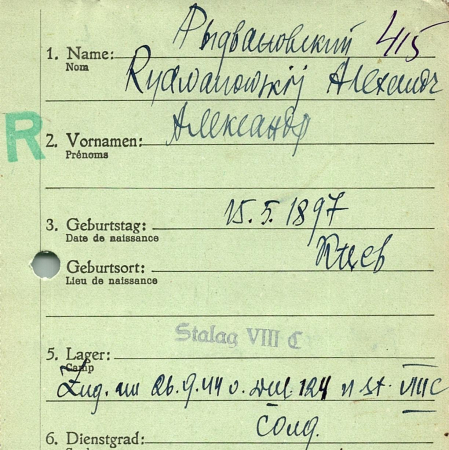 Рыдвановский 415
1. Name:
Nom
Rydwanowskij Alexandr
R
2. Vornamen: Александр
Prénoms
3. Geburtstag: 15.5.1897
Date de naissance
Geburtsort: Киев
Lieu de naissance
Stalag VIII C
5. Lager:
Camp
Zug. am 26.9.44 v. 124 n St. VIIIC
6. Dienstgrad: Солд.